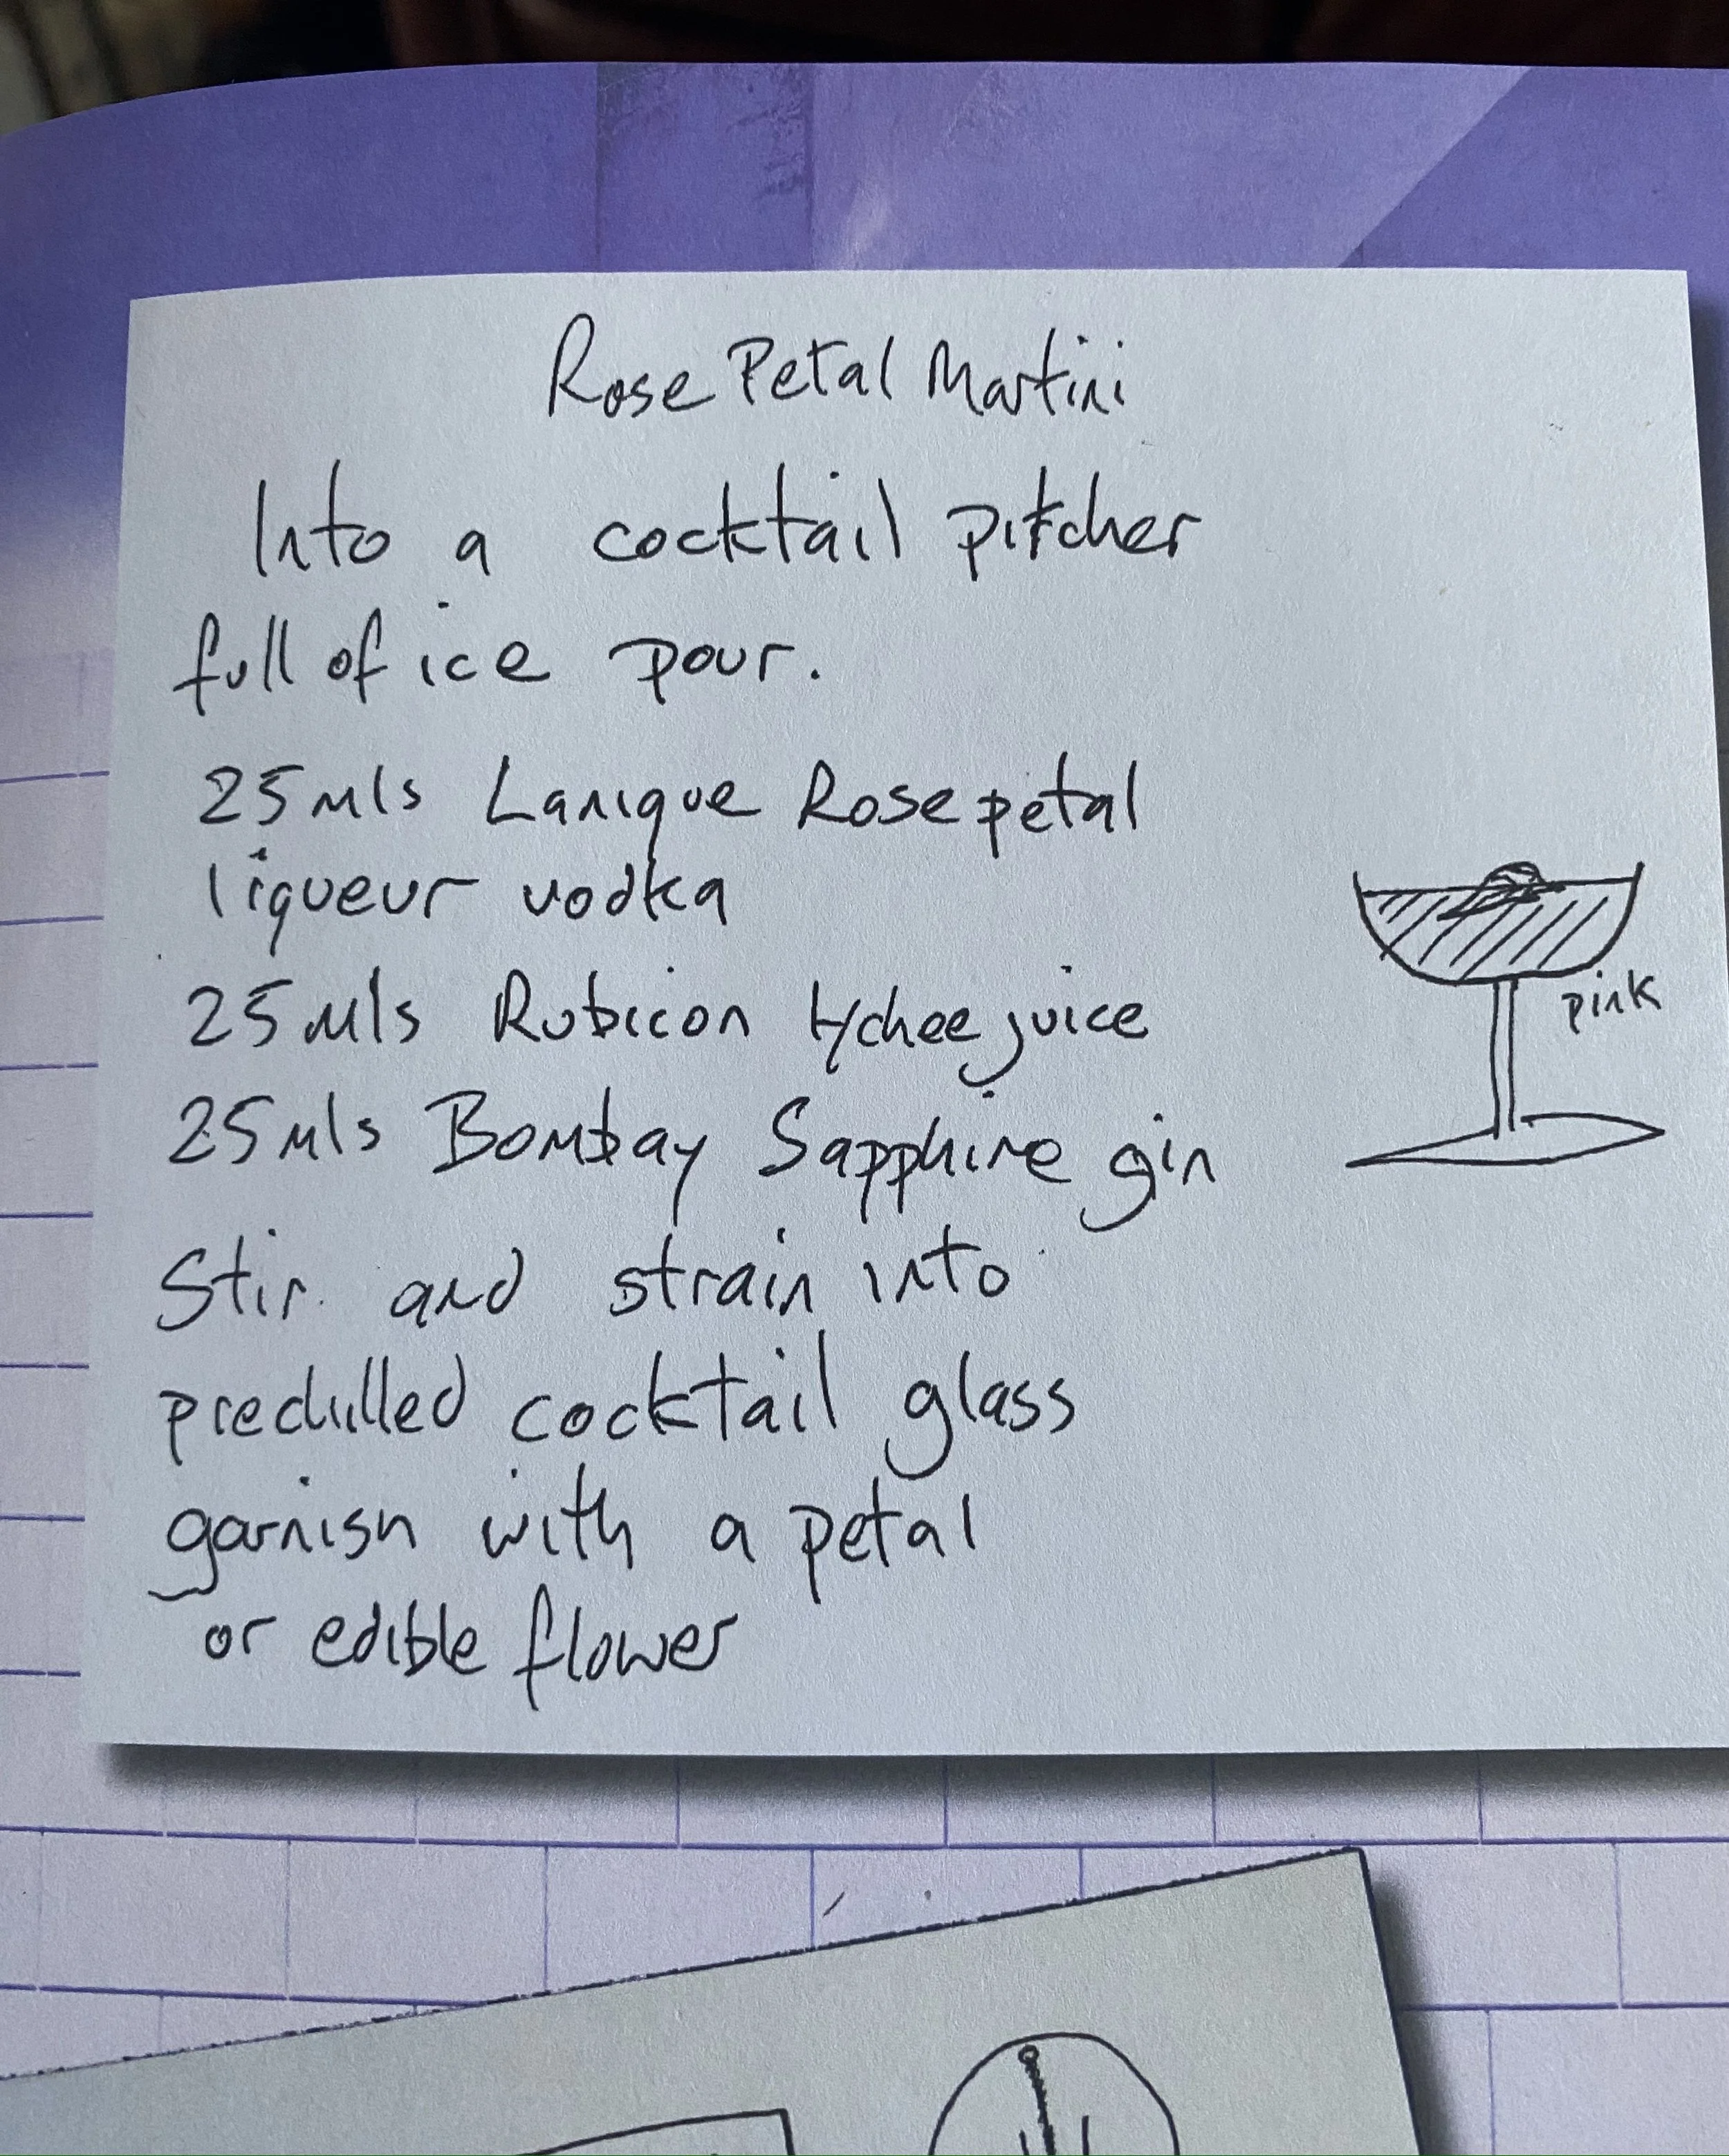 Rose Petal Martini
Into a cocktail pitcher
full of ice pour.
25mls Lanique Rose petal
liqueur vodka
25mls Rubicon lychee juice
pink
25mls Bombay Sapphire gin
Stir and strain into
prechilled cocktail glass
garnish with a petal
or edible flower